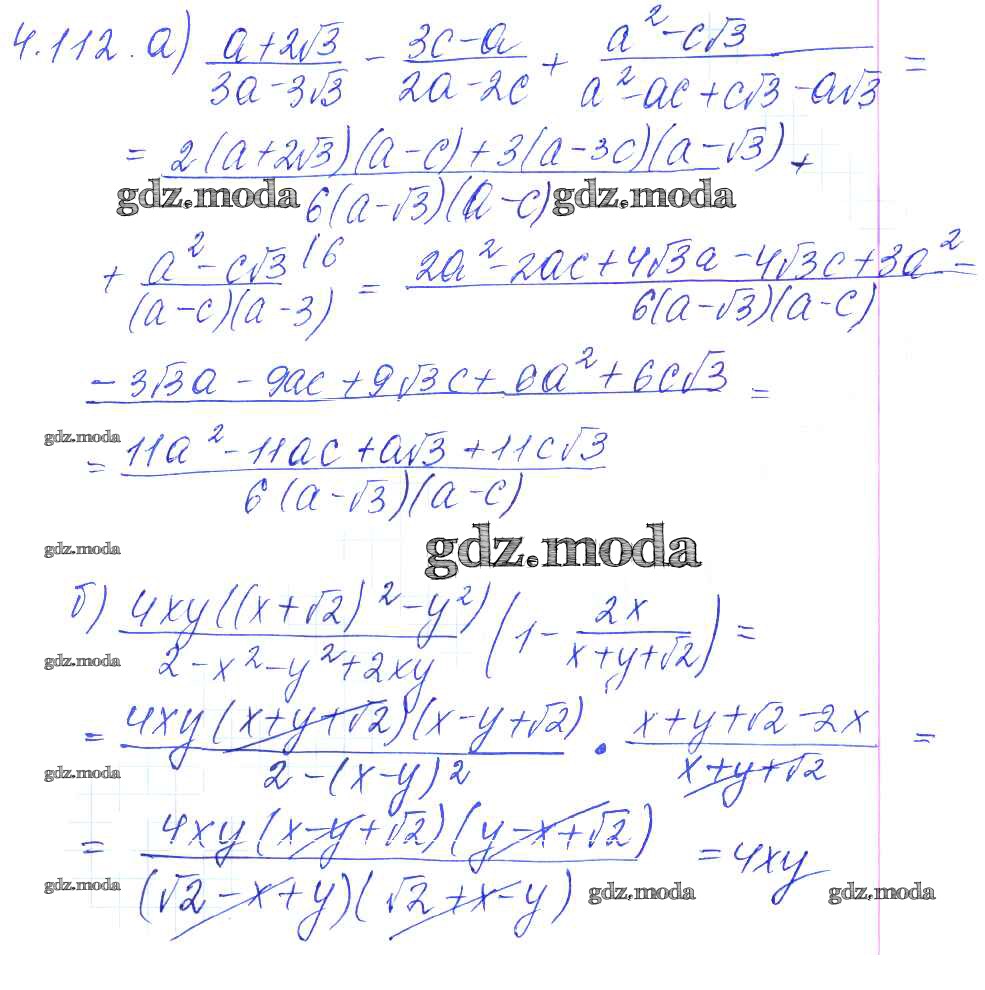 4.112. а) (a+2√3)/(3a-3√3) - (3c-a)/(2a-2c) + (a²-c√3)/(a²-ac+c√3-a√3) =
= (2(a+2√3)(a-c)+3(a-3c)(a-√3))/(6(a-√3)(a-c)) +
gdz.moda gdz.moda
+ (a²-c√3 |6)/((a-c)(a-3)) = (2a²-2ac+4√3a-4√3c+3a²-)/(6(a-√3)(a-c))
-3√3a-9ac+9√3c+6a²+6c√3 =
gdz.moda
= (11a²-11ac+a√3+11c√3)/(6(a-√3)(a-c))
gdz.moda gdz.moda
б) (4xy((x+√2)²-y²))/(2-x²-y²+2xy) (1 - 2x/(x+y+√2)) =
gdz.moda
= (4xy(x+y+√2)(x-y+√2))/(2-(x-y)²) · (x+y+√2-2x)/(x+y+√2) =
gdz.moda
= (4xy(x-y+√2)(y-x+√2))/((√2-x+y)(√2+x-y)) = 4xy
gdz.moda gdz.moda gdz.moda